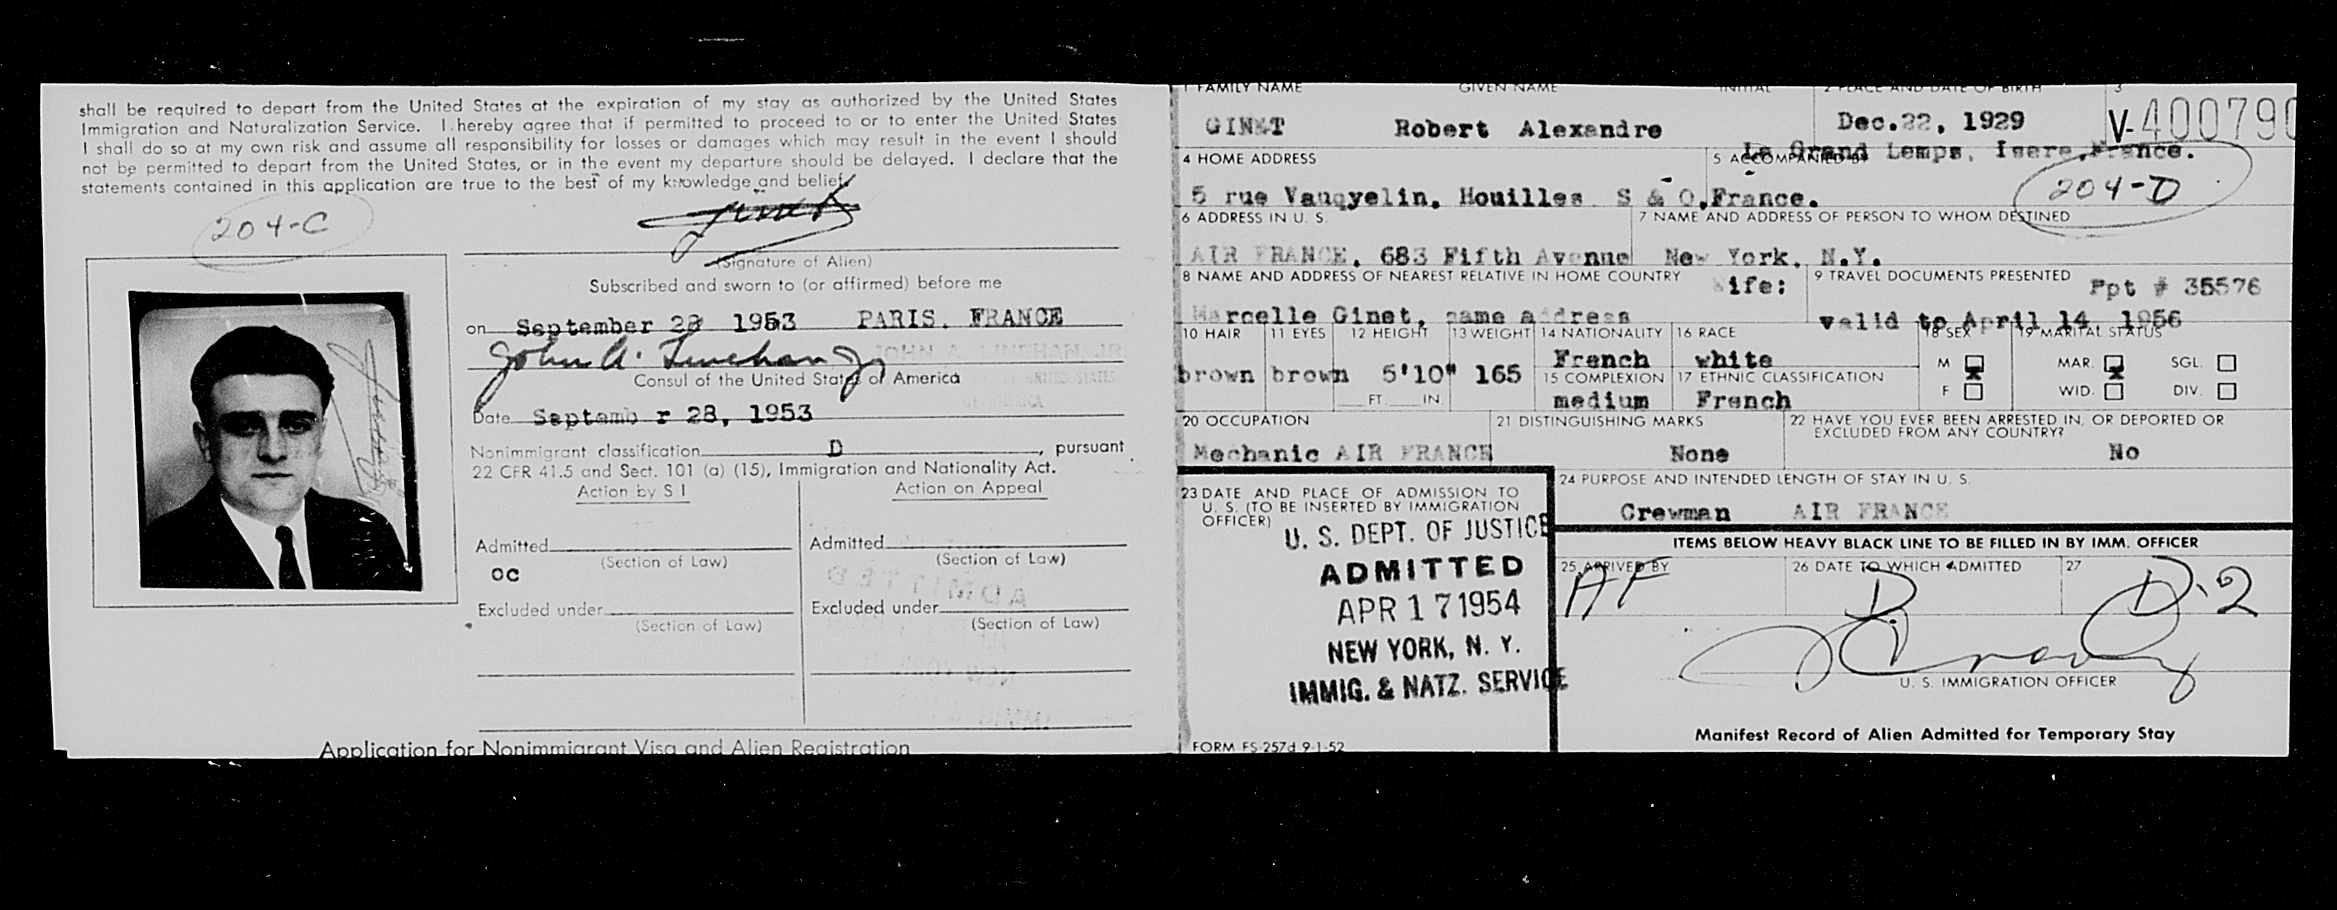 shall be required to depart from the United States at the expiration of my stay as authorized by the United States
Immigration and Naturalization Service. I hereby agree that if permitted to proceed to or to enter the United States
I shall do so at my own risk and assume all responsibility for losses or damages which may result in the event I should
not be permitted to depart from the United States, or in the event my departure should be delayed. I declare that the
statements contained in this application are true to the best of my knowledge and belief
204-C
Ginet
(Signature of Alien)
Subscribed and sworn to (or affirmed) before me
on September 28 1953 PARIS. FRANCE
John A. Linehan Jr
JOHN A. LINEHAN, JR
Consul of the United States of America
Date September 28, 1953
Nonimmigrant classification D, pursuant
22 CFR 41.5 and Sect. 101 (a) (15), Immigration and Nationality Act.
Action by S I
Action on Appeal
Admitted
(Section of Law)
Admitted
(Section of Law)
OC
Excluded under
(Section of Law)
Excluded under
(Section of Law)
Application for Nonimmigrant Visa and Alien Registration
1 FAMILY NAME GIVEN NAME INITIAL 2 PLACE AND DATE OF BIRTH 3
GINET Robert Alexandre Dec.22, 1929 V-400790
Le Grand Lemps, Isere, France.
4 HOME ADDRESS 5 ACCOMPANIED BY
5 rue Vauqyelin, Houilles S & O, France. 204-D
6 ADDRESS IN U. S. 7 NAME AND ADDRESS OF PERSON TO WHOM DESTINED
AIR FRANCE, 683 Fifth Avenue New York, N.Y.
8 NAME AND ADDRESS OF NEAREST RELATIVE IN HOME COUNTRY Wife: 9 TRAVEL DOCUMENTS PRESENTED Ppt # 35576
Marcelle Ginet, same address valid to April 14 1956
10 HAIR 11 EYES 12 HEIGHT 13 WEIGHT 14 NATIONALITY 16 RACE 18 SEX 19 MARITAL STATUS
French white M MAR. SGL.
brown brown 5'10" 165 15 COMPLEXION 17 ETHNIC CLASSIFICATION F WID. DIV.
FT. IN. medium French
20 OCCUPATION 21 DISTINGUISHING MARKS 22 HAVE YOU EVER BEEN ARRESTED IN, OR DEPORTED OR
EXCLUDED FROM ANY COUNTRY?
Mechanic AIR FRANCE None No
23 DATE AND PLACE OF ADMISSION TO
U. S. (TO BE INSERTED BY IMMIGRATION
OFFICER)
24 PURPOSE AND INTENDED LENGTH OF STAY IN U. S.
Crewman AIR FRANCE
U. S. DEPT. OF JUSTICE
ADMITTED
APR 17 1954
NEW YORK, N. Y.
IMMIG. & NATZ. SERVICE
ITEMS BELOW HEAVY BLACK LINE TO BE FILLED IN BY IMM. OFFICER
25 ARRIVED BY 26 DATE TO WHICH ADMITTED 27
AF D D-2
U. S. IMMIGRATION OFFICER
Manifest Record of Alien Admitted for Temporary Stay
FORM FS-257d 9-1-52